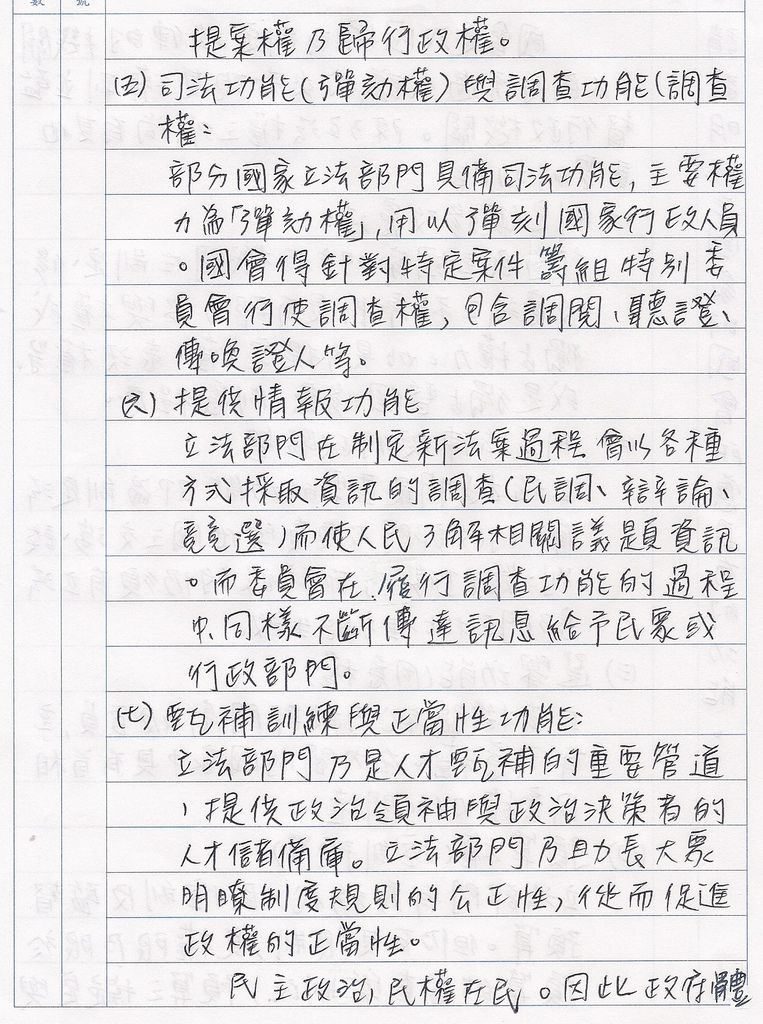 數 號
提案權乃歸行政權。
(五)司法功能(彈劾權)與調查功能(調查
權:
部分國家立法部門具備司法功能,主要權
力為「彈劾權」,用以彈刻國家行政人員
。國會得針對特定案件籌組特別委
員會行使調查權,包含調閱、聽證、
傳喚證人等。
(六)提供情報功能
立法部門在制定新法案過程會以各種
方式採取資訊的調查(民調、辯論、
競選)而使人民了解相關議題資訊
。而委員會在履行調查功能的過程
中,同樣不斷傳達訊息給予民眾或
行政部門。
(七)甄補訓練與正當性功能:
立法部門乃是人才甄補的重要管道
,提供政治領袖與政治決策者的
人才儲備庫。立法部門乃助長大眾
明瞭制度規則的公正性,從而促進
政權的正當性。
民主政治,民權在民。因此政府體